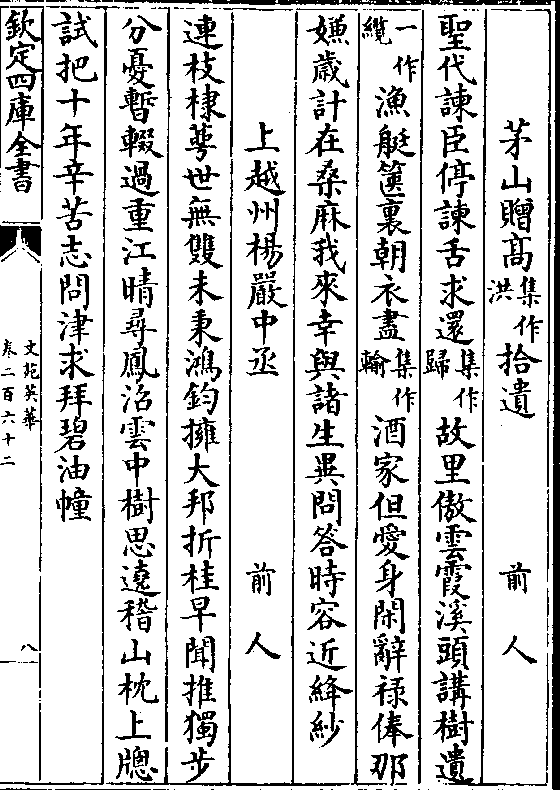 茅山贈髙集作洪拾遺　前人
聖代諫臣停諫舌求還集作歸故里傲雲霞溪頭講樹遺
一作纜漁艇篋裏朝衣盡集作輸酒家但愛身閑辭禄俸那
嫌歳計在桑麻我來幸與諸生異問答時容近絳紗
上越州楊嚴中丞　前人
連枝棣萼世無雙未秉鴻鈞擁大邦折桂早聞推獨步
分憂暫輟過重江晴尋鳳沼雲中樹思遶稽山枕上牕
試把十年辛苦志問津求拜碧油幢
欽定四庫全書
文苑英華
卷二百六十二
八